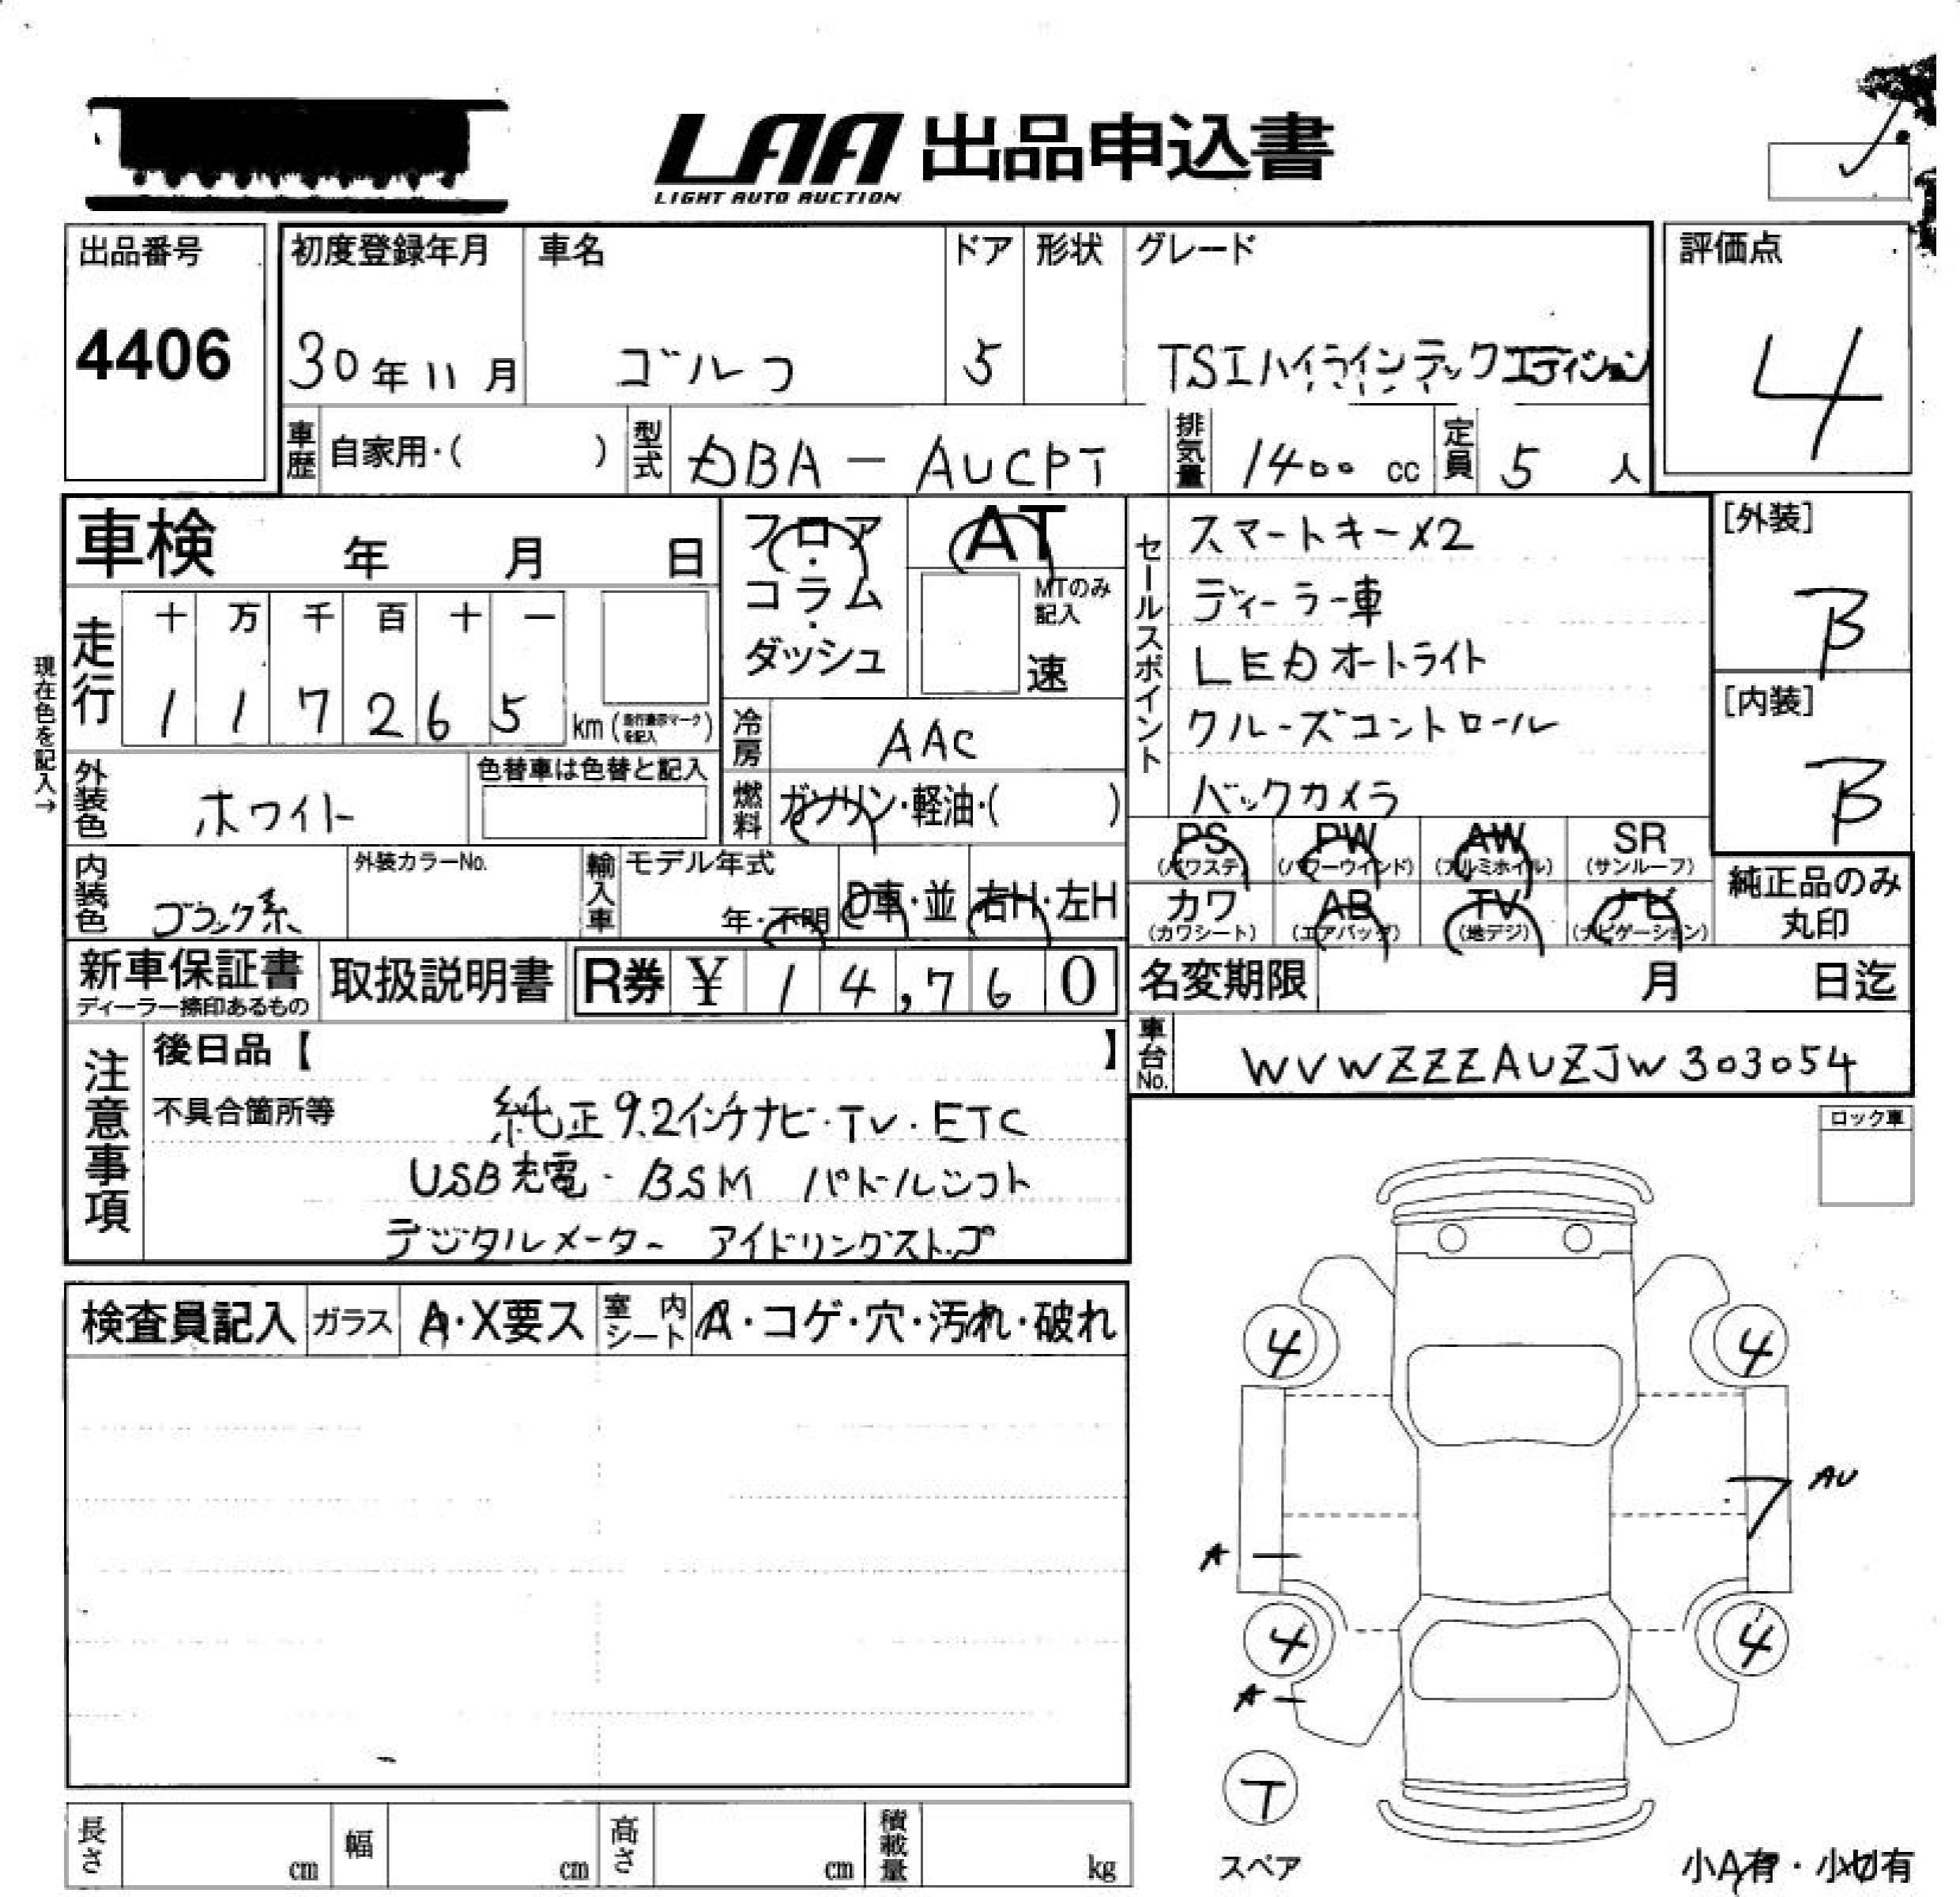 LAA 出品申込書
LIGHT AUTO AUCTION
出品番号
4406
初度登録年月
30年11月
車名
ゴルフ
ドア
5
形状
グレード
TSIハイラインテックエディション
評価点
4
車歴 自家用・( )
型式 DBA-AUCPT
排気量 1400 cc
定員 5 人
車検 年 月 日
フロア・コラム・ダッシュ
AT
MTのみ記入
速
セールスポイント
スマートキーX2
ディーラー車
LEDオートライト
クルーズコントロール
バックカメラ
[外装]
B
[内装]
B
現在色を記入→
走行
十 万 千 百 十 一
1 1 7 2 6 5 km (走行表示マークを記入)
冷房 AAC
外装色 ホワイト
色替車は色替と記入
燃料 ガソリン・軽油・( )
PS (パワステ)
PW (パワーウインド)
AW (アルミホイル)
SR (サンルーフ)
カワ (カワシート)
AB (エアバッグ)
TV (地デジ)
ナビ (ナビゲーション)
純正品のみ丸印
内装色 ブラック系
外装カラーNo.
輸入車
モデル年式
年・不明
D車・並
右H・左H
新車保証書
ディーラー捺印あるもの
取扱説明書
R券 ¥ 14,760
名変期限 月 日迄
車台No. WVWZZZAUZJW303054
注意事項
後日品【 】
不具合箇所等
純正9.2インチナビ・TV・ETC
USB充電・BSM パドルシフト
デジタルメーター アイドリングストップ
ロック車
検査員記入
ガラス A・X要ス
室内シート A・コゲ・穴・汚れ・破れ
4 4
AU
A
4 4
A
T
スペア
小A有・小U有
長さ cm
幅 cm
高さ cm
積載量 kg